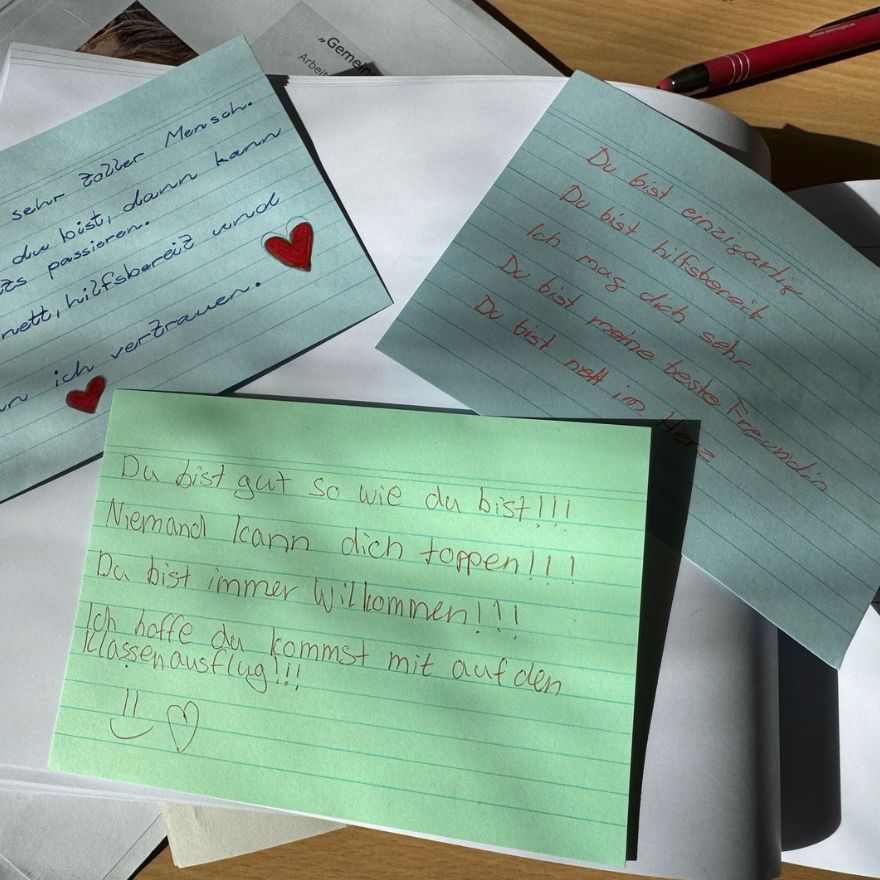 „Gemein
Arbeit
sehr toller Mensch.
du bist, dann kann
passieren.
nett, hilfsbereit und
ich vertrauen.
Du bist einzigartig
Du bist hilfsbereit
Ich mag dich sehr
Du bist meine beste Freundin
Du bist nett im Herz
Du bist gut so wie du bist!!!
Niemand kann dich toppen!!!
Du bist immer Wilkommen!!!
Ich hoffe du kommst mit auf den
Klassenausflug!!!